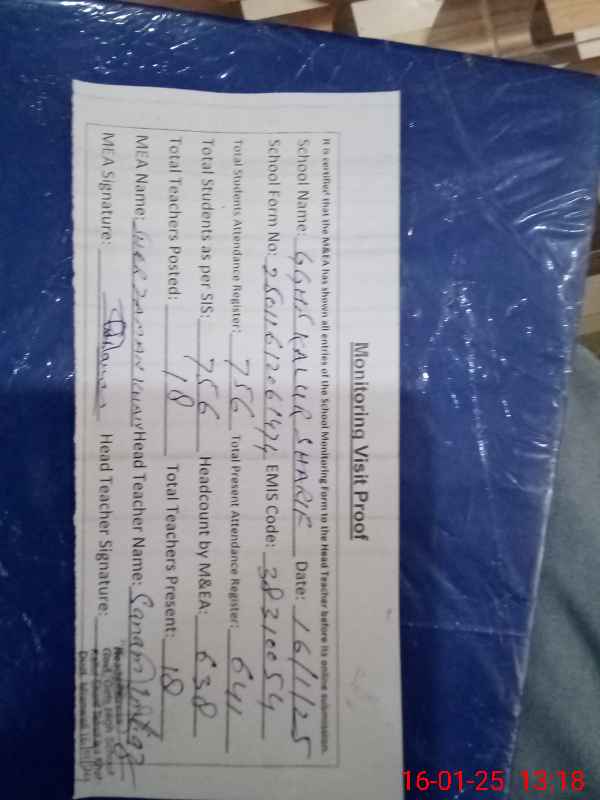 Monitoring Visit Proof
It is certified that the M&EA has shown all entries of the School Monitoring Form to the Head Teacher before its online submission.
School Name: GGHS KALUR SHARIF Date: 16/1/25
School Form No: EMIS Code: 38310054
Total Students Attendance Register: 756 Total Present Attendance Register: 641
Total Students as per SIS: 756 Headcount by M&EA: 638
Total Teachers Posted: 18 Total Teachers Present: 18
MEA Name: SHER ZAMAN KHAN Head Teacher Name: Sanam
MEA Signature: Head Teacher Signature:
Govt. Girls High School
16-01-25 13:18